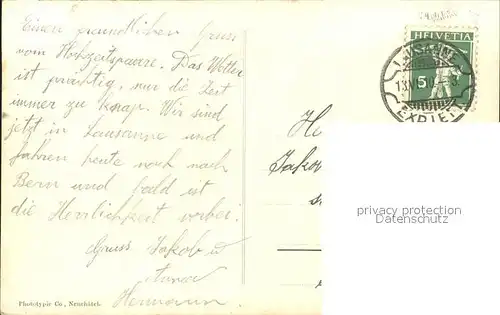 Einen freundlichen Gruss
vom Hochzeitspaare. Das Wetter
ist prächtig, nur die Zeit
immer zu knap. Wir sind
jetzt in Lausanne und
fahren heute noch nach
Bern und bald ist
die Herrlichkeit vorbei.
Gruss Jakob u
Anna
Hermann.
Phototypie Co., Neuchâtel.
HELVETIA
5
LAUSANNE
EXP. LET.
H
Jakob
privacy protection
Datenschutz